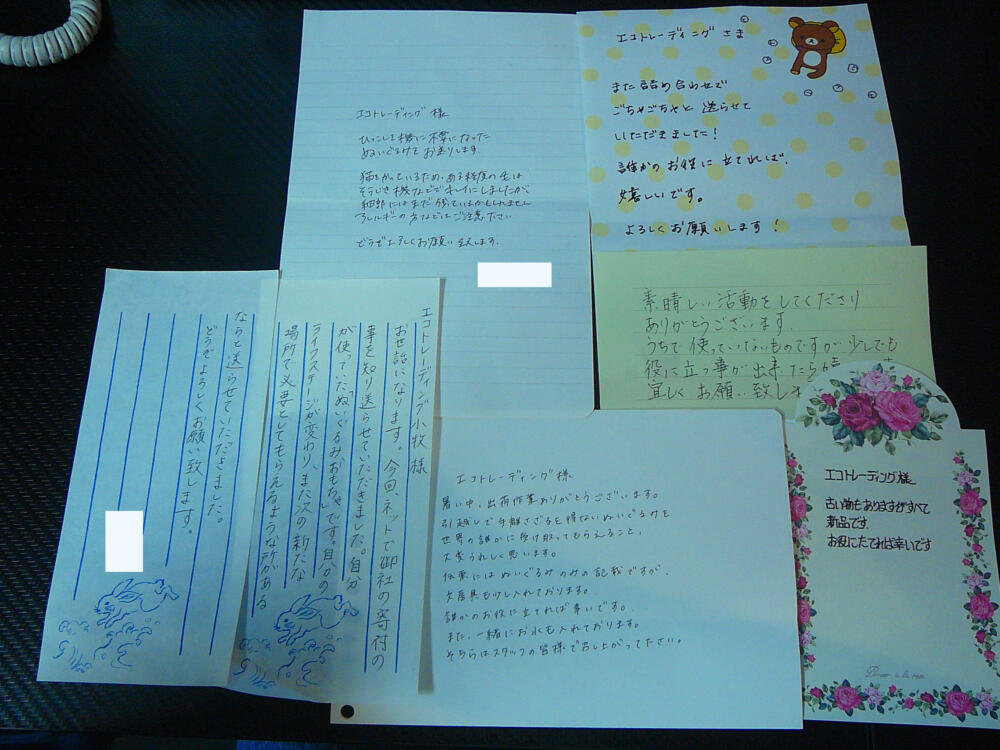 エコトレーディング様
ひっこしを機に不要になった
ぬいぐるみをお送りします。
猫をかっているため、ある程度の毛は
そうじき機などでキレイにしましたが、
細部にはまだ残っているかもしれません
アレルギーの方などはご注意ください
どうぞよろしくお願い致します。
エコトレーディングさま
また詰め合わせで
ごちゃごちゃと送らせて
いただきました!
誰かのお役に立てれば、
嬉しいです。
よろしくお願いします!
素晴しい活動をしてくださり
ありがとうございます。
うちで使っていないものですが少しでも
役に立つ事が出来たら
宜しくお願い致し
エコトレーディング小牧様
お世話になります。今回、ネットで御社の寄付の
事を知り送らせていただきました。自分
が使っていたぬいぐるみおもちゃです。自分の
ライフステージが変わり、また次の新たな
場所で必要としてもらえるような所がある
ならと送らせていただきました。
どうぞよろしくお願い致します。
エコトレーディング様、
暑い中、出荷作業ありがとうございます。
引越しで手離さざるを得ないぬいぐるみを
世界の誰かに受け取ってもらえること、
大変うれしく思います。
伝票にはぬいぐるみのみの記載ですが、
文房具も少し入れております。
誰かのお役に立てれば幸いです。
また、一緒にお水も入れております。
そちらはスタッフの皆様で召し上がって下さい。
エコトレーディング様
古い物もありますがすべて
新品です。
お役にたてれば幸いです